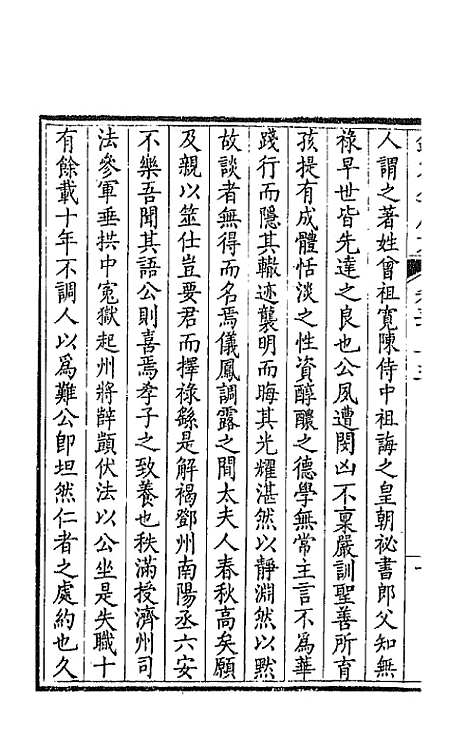 人謂之著姓曾祖寬陳侍中祖誨之皇朝祕書郎父知無
祿早世皆先達之良也公夙遭閔凶不稟嚴訓聖善所育
孩提有成體恬淡之性資醇醲之德學無常主言不爲華
踐行而隱其轍迹襲明而晦其光耀湛然以靜淵然以默
故談者無得而名焉儀鳳調露之間太夫人春秋高矣願
及親以筮仕豈要君而擇祿繇是解褐鄧州南陽丞六安
不樂吾聞其語公則喜焉孝子之致養也秩滿授濟州司
法參軍垂拱中寃獄起州將辥顗伏法以公坐是失職十
有餘載十年不調人以爲難公卽坦然仁者之處約也久